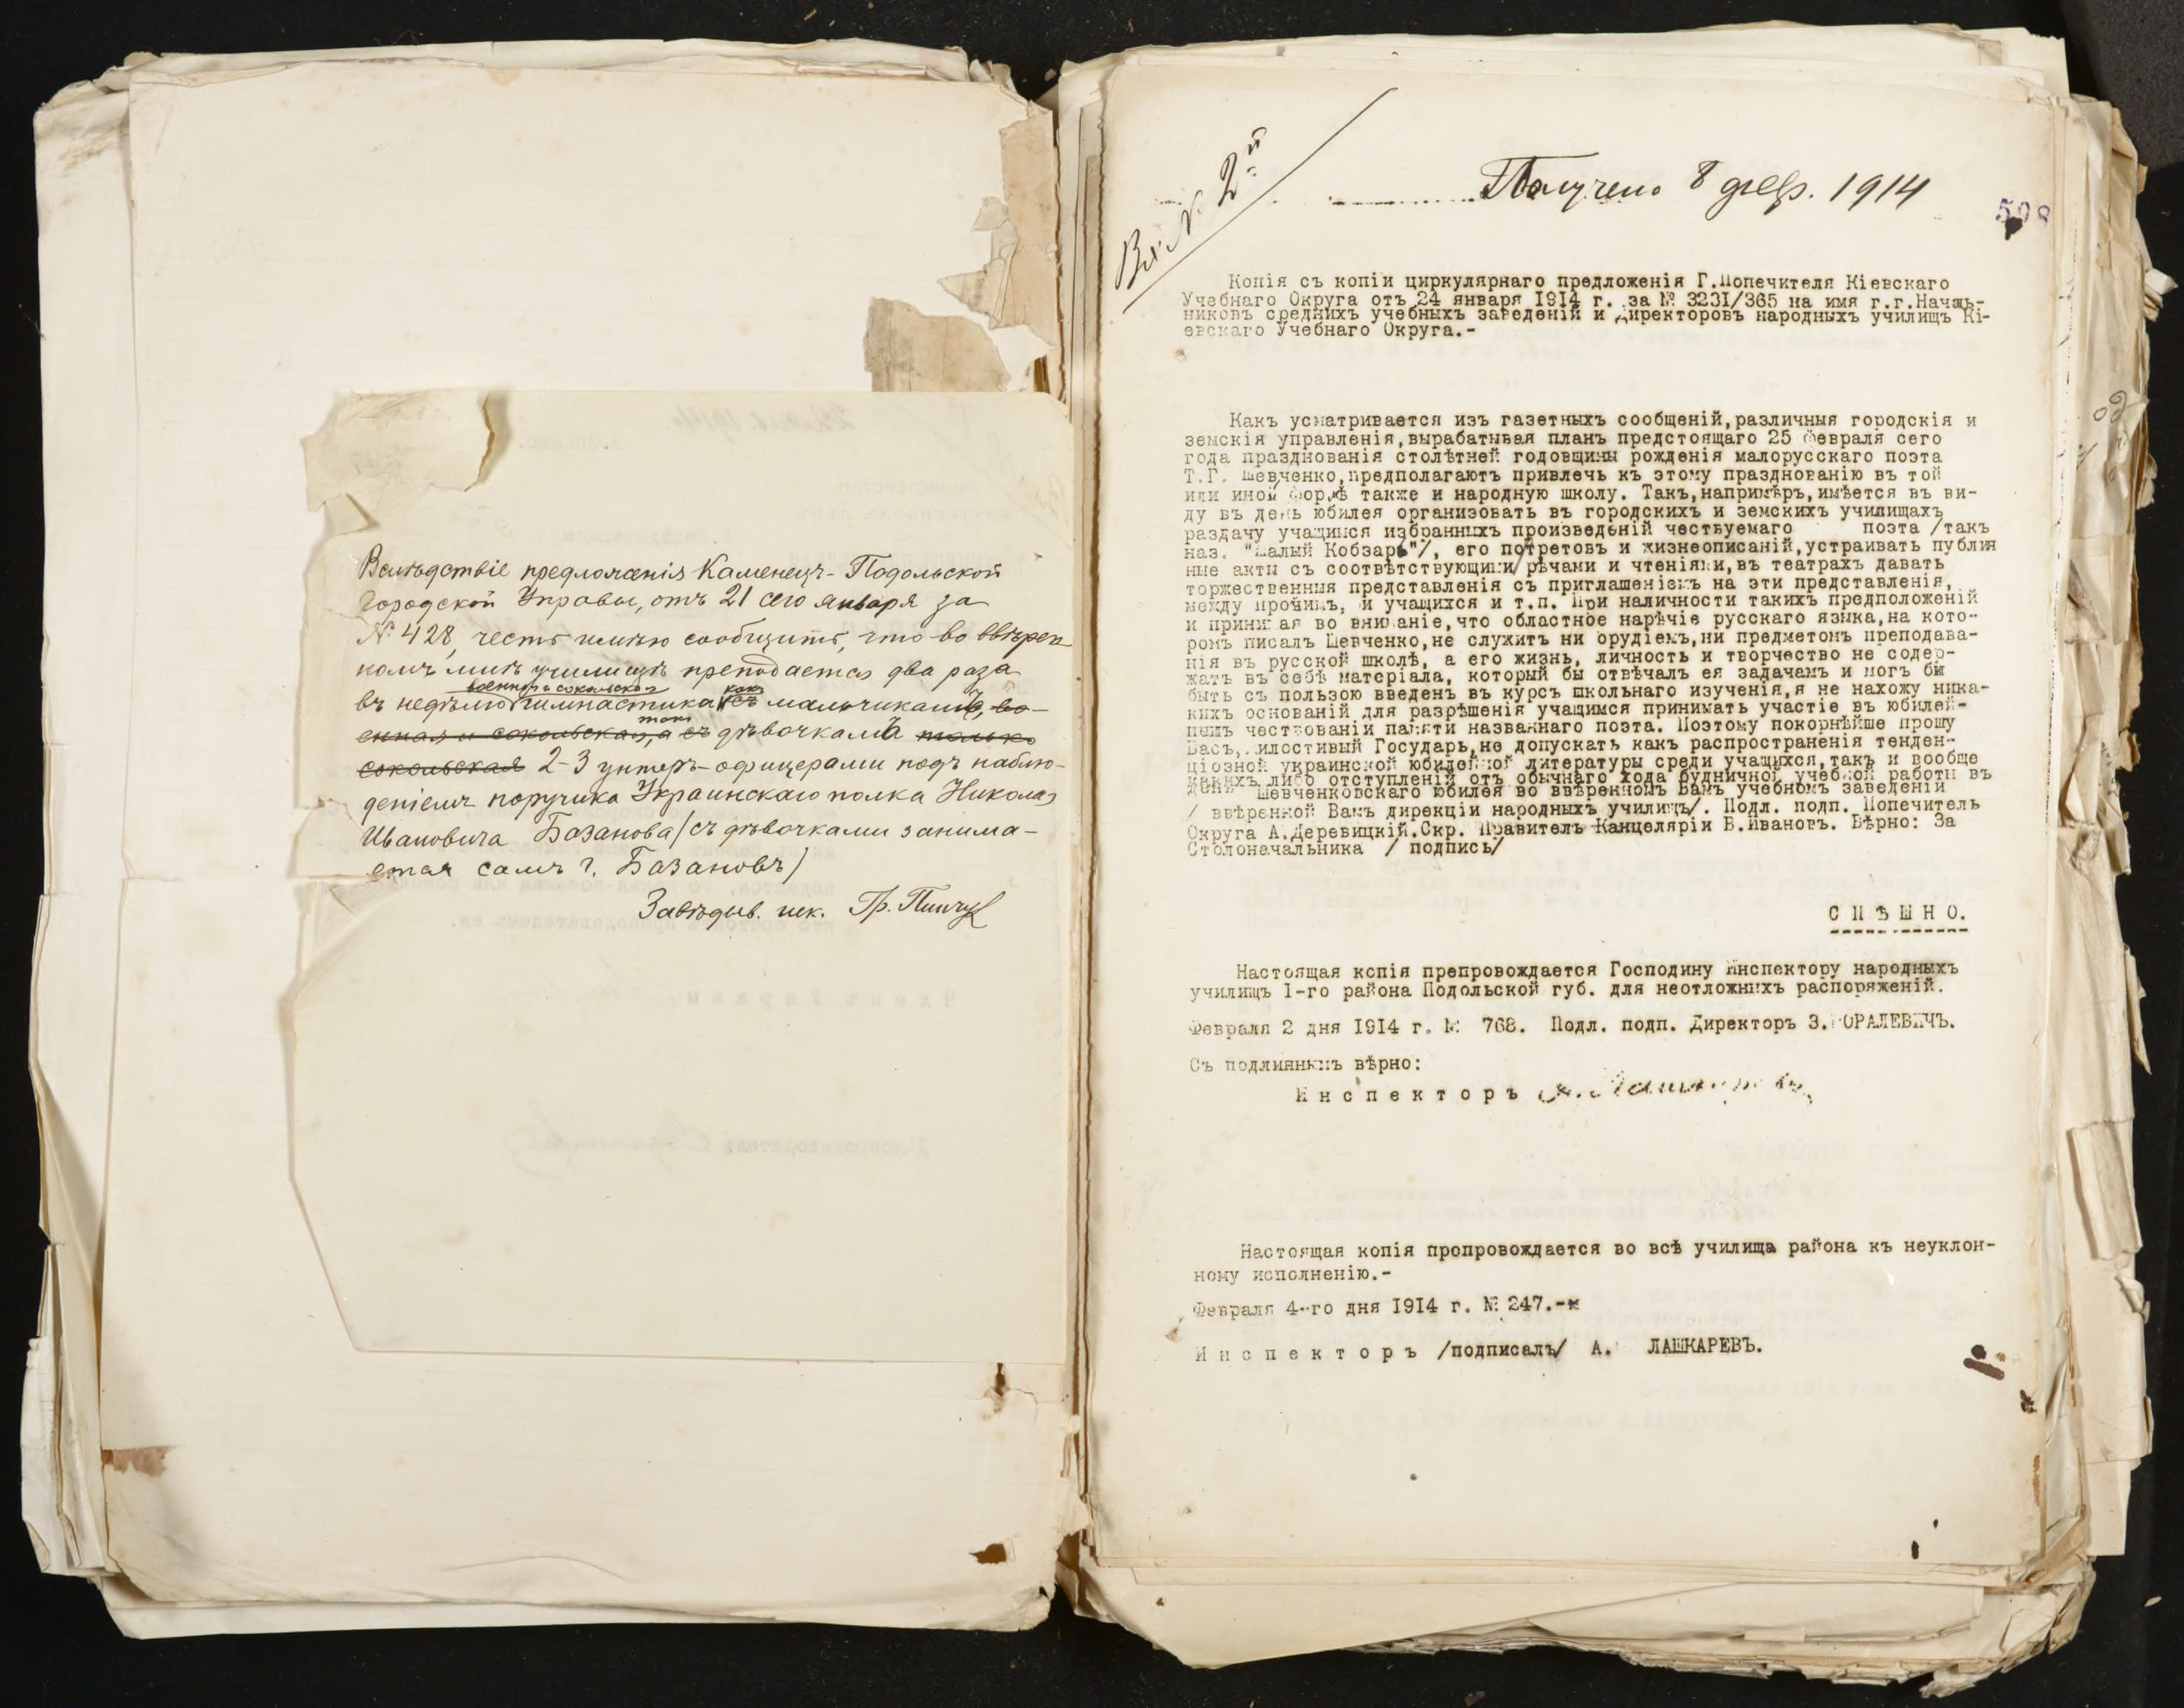 Вслѣдствіе предложенія Каменецъ-Подольской
Городской Управы, отъ 21 сего января за
№ 428, честь имѣю сообщить, что во ввѣрен
номъ мнѣ училищѣ преподается два раза
военная и сокольская как
въ недѣлю гимнастика съ мальчикамъ, во-
такъ
енная и сокольская, а съ дѣвочкамъ только
сокольская 2-3 унтеръ-офицерами подъ наблю-
деніемъ поручика Украинскаго полка Николая
Ивановича Базанова /съ дѣвочками занима-
ется самъ г. Базановъ/
Завѣдыв. инс. Гр. Пинчук
Вх. № 2й
Получено 8 февр. 1914
598
Копія съ копіи циркулярнаго предложенія Г.Попечителя Кіевскаго
Учебнаго Округа отъ 24 января 1914 г. за № 3231/365 на имя г.г.Началь-
никовъ среднихъ учебныхъ заведеній и Директоровъ народныхъ училищъ Кі-
евскаго Учебнаго Округа.-
Какъ усматривается изъ газетныхъ сообщеній,различныя городскія и
земскія управленія,вырабатывая планъ предстоящаго 25 февраля сего
года празднованія столѣтней годовщины рожденія малорусскаго поэта
Т.Г. Шевченко,предполагаютъ привлечь къ этому празднованію въ той
или иной формѣ также и народную школу. Такъ,напримѣръ,имѣется въ ви-
ду въ день юбилея организовать въ городскихъ и земскихъ училищахъ
раздачу учащимся избранныхъ произведеній чествуемаго поэта /такъ
наз. "Малый Кобзарь"/, его потретовъ и жизнеописаній,устраивать публич
ные акты съ соотвѣтствующими рѣчами и чтеніями,въ театрахъ давать
торжественныя представленія съ приглашеніемъ на эти представленія,
между прочимъ, и учащихся и т.п. При наличности такихъ предположеній
и принимая во вниманіе,что областное нарѣчіе русскаго языка,на кото-
ромъ писалъ Шевченко,не служитъ ни орудіемъ,ни предметомъ преподава-
нія въ русской школѣ, а его жизнь, личность и творчество не содер-
жатъ въ себѣ матеріала, который бы отвѣчалъ ея задачамъ и могъ бы
быть съ пользою введенъ въ курсъ школьнаго изученія,я не нахожу ника-
кихъ основаній для разрѣшенія учащимся принимать участіе въ юбилей-
номъ чествованіи памяти названнаго поэта. Поэтому покорнѣйше прошу
Васъ,Милостивый Государь,не допускать какъ распространенія тенден-
ціозной украинской юбилейной литературы среди учащихся,такъ и вообще
какихъ либо отступленій отъ обычнаго хода будничной учебной работы въ
день Шевченковскаго юбилея во ввѣренномъ Вамъ учебномъ заведеніи
/ ввѣренной Вамъ дирекціи народныхъ училищъ/. Подл. подп. Попечитель
Округа А.Деревицкій.Скр. Правитель Канцеляріи В.Ивановъ. Вѣрно: За
Столоначальника / подпись/
СПѢШНО.
Настоящая копія препровождается Господину Инспектору народныхъ
училищъ 1-го района Подольской губ. для неотложныхъ распоряженій.
Февраля 2 дня 1914 г. № 768. Подл. подп. Директоръ З.БОРАЛЕВИЧЪ.
Съ подлиннымъ вѣрно:
Инспекторъ А. Лашкаревъ
Настоящая копія пропровождается во всѣ училища района къ неуклон-
ному исполненію.-
Февраля 4-го дня 1914 г. № 247.-
Инспекторъ /подписалъ/ А. ЛАШКАРЕВЪ.